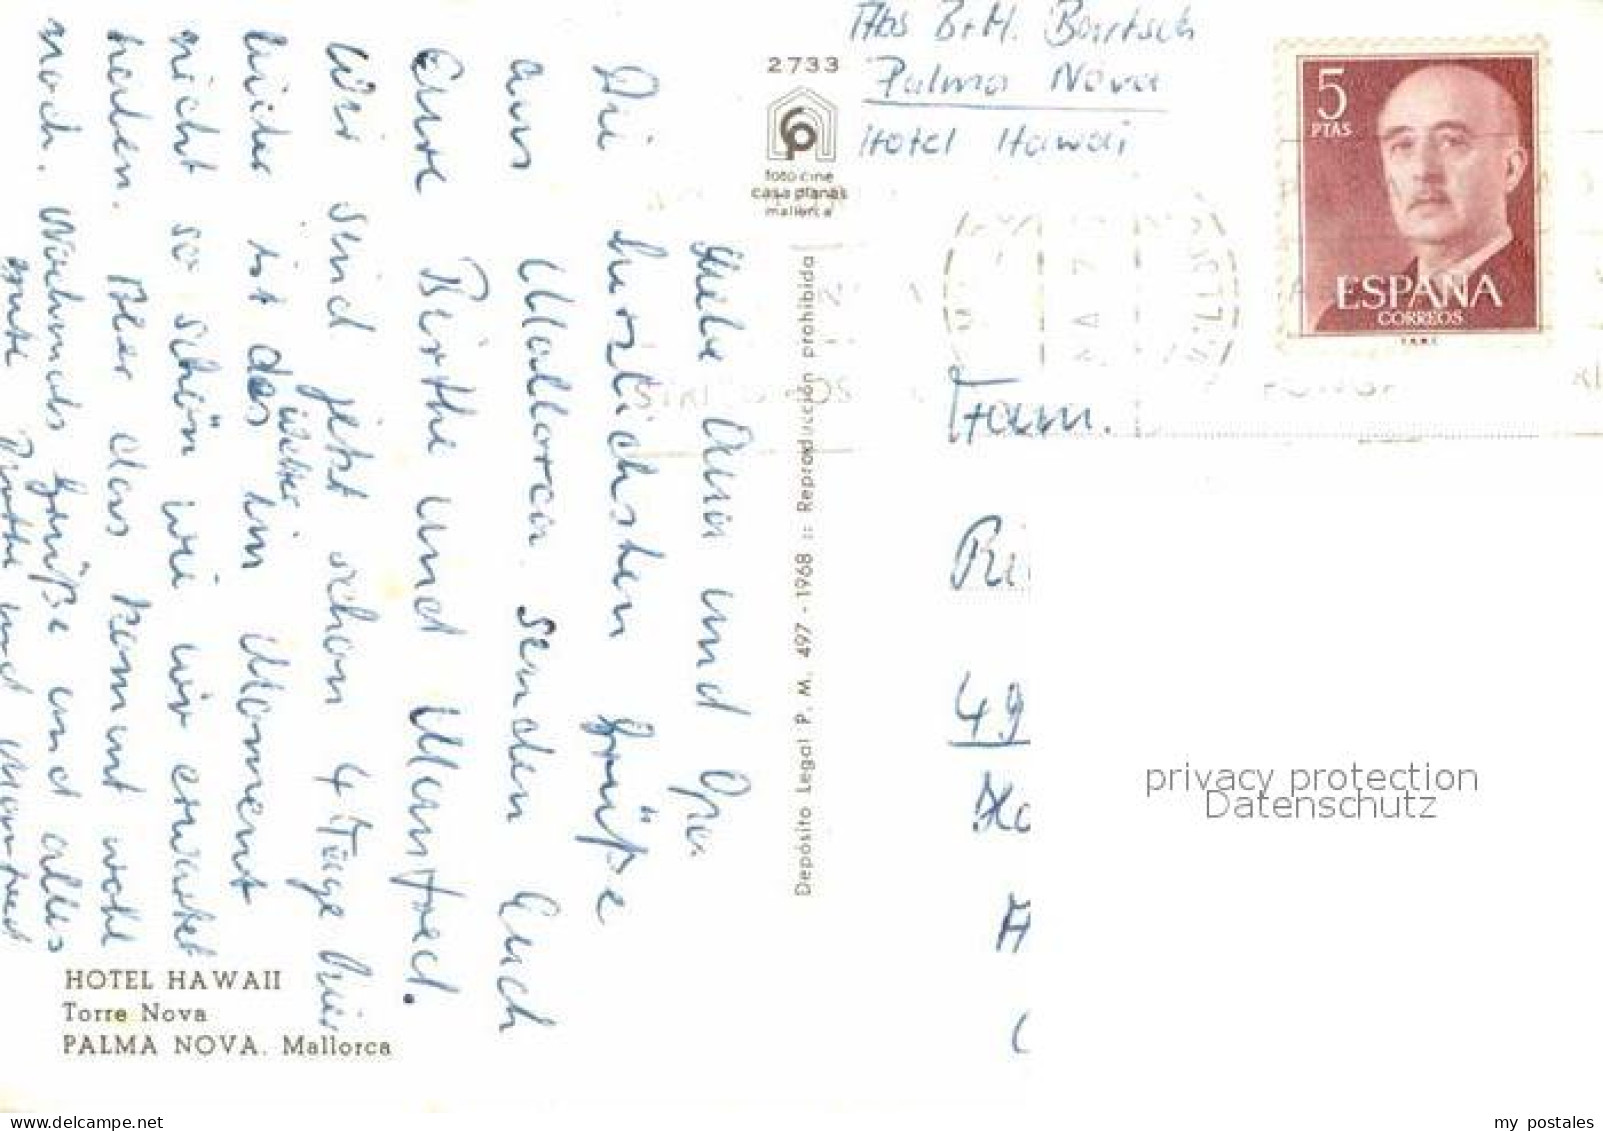 Abs B+M. Bartsch
Palma Nova
Hotel Hawai
2733
foto cine
casa planas
mallorca
5
PTAS
ESPAÑA
CORREOS
Depósito Legal P. M. 497 - 1968 :: Reproducción prohibida
Fam.
49
privacy protection
Datenschutz
Liebe Oma und Opa
Die herzlichsten Grüße
aus Mallorca senden Euch
Eure Birthe und Manfred.
Wir sind jetzt schon 4 Tage hier
leider ist das Wetter im Moment
nicht so schön wie wir erwartet
haben. Aber das kommt wohl
noch. Nochmals Grüße und alles
gute Birthe und Manfred
HOTEL HAWAII
Torre Nova
PALMA NOVA. Mallorca
www.delcampe.net
my_postales